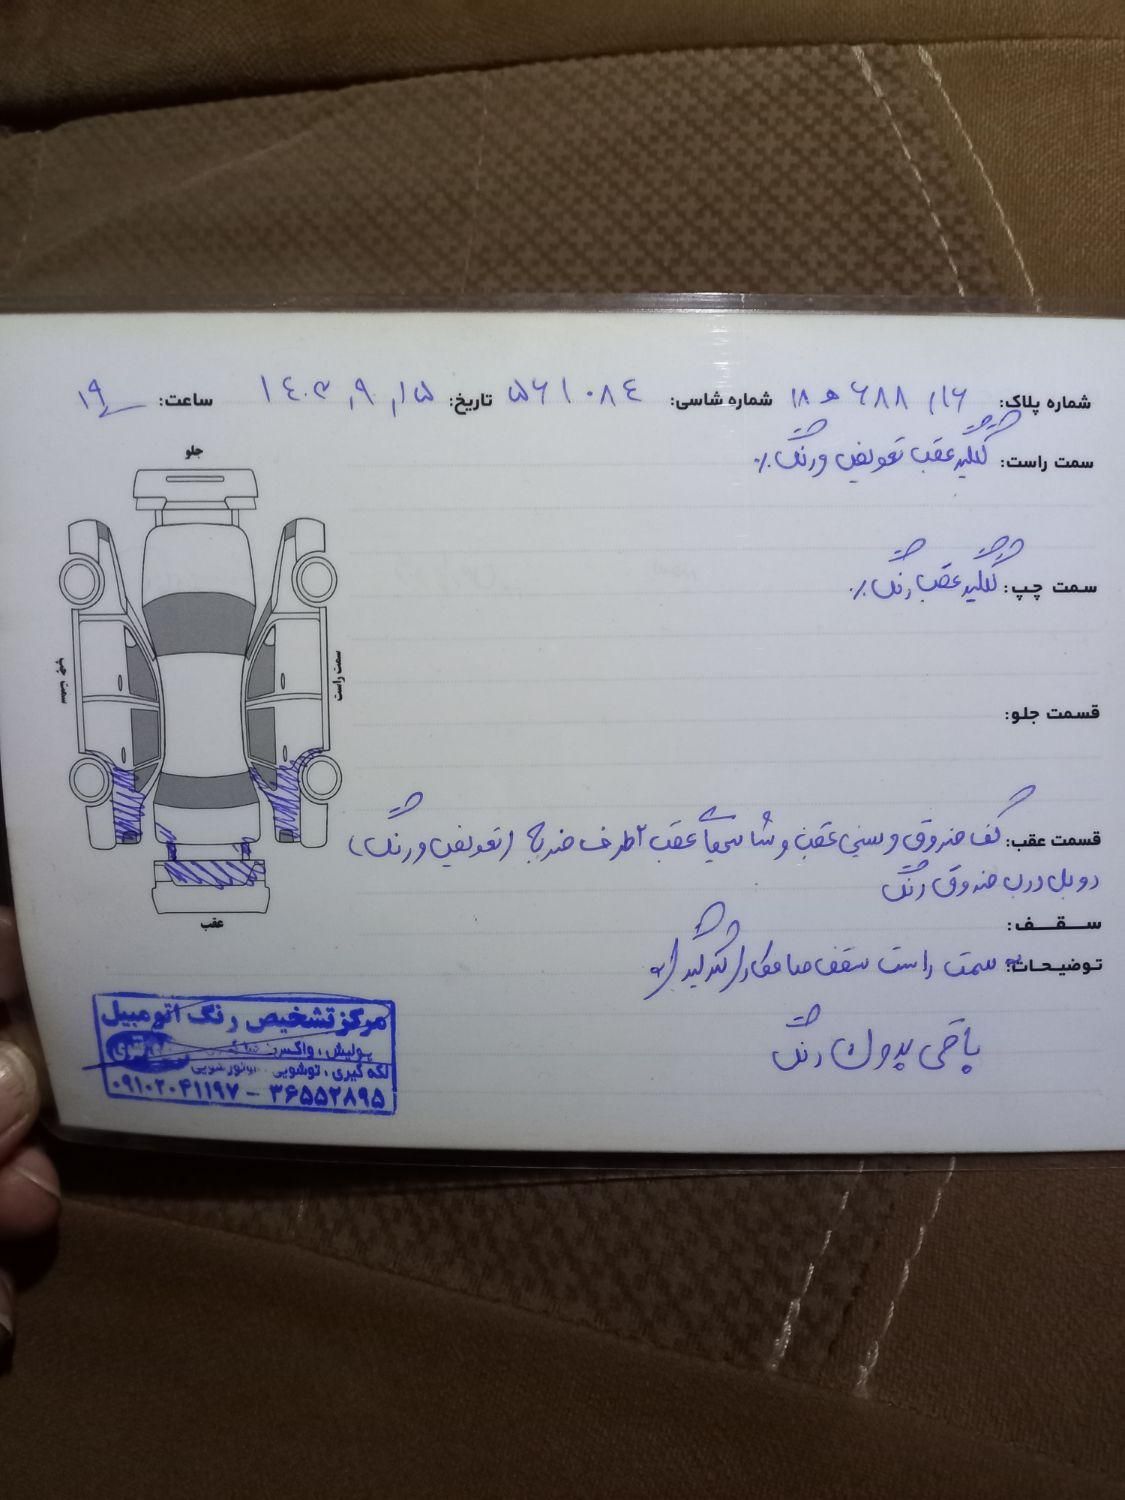 شماره پلاک: ۱۶ / ۶۸۸ ه ۱۸ شماره شاسی: ۵۶۱۰۸۴ تاریخ: ۱۴۰۳/۹/۱۵ ساعت: ۱۹
سمت راست: گلگیر عقب تعویض و رنگ ٪
سمت چپ: گلگیر عقب رنگ ٪
قسمت جلو:
قسمت عقب: کف صندوق و سینی عقب و شاسیهای عقب ۲ طرف (تعویض و رنگ)
دوبل درب صندوق رنگ
سقف:
توضیحات: سمت راست سقف صافکاری
باقی بدون رنگ
جلو
سمت چپ
سمت راست
عقب
مرکز تشخیص رنگ اتومبیل
پولیش، واکس
لکه گیری، توشویی، موتورشویی
۰۹۱۰۲۰۴۱۱۹۷ - ۳۶۵۵۲۸۹۵